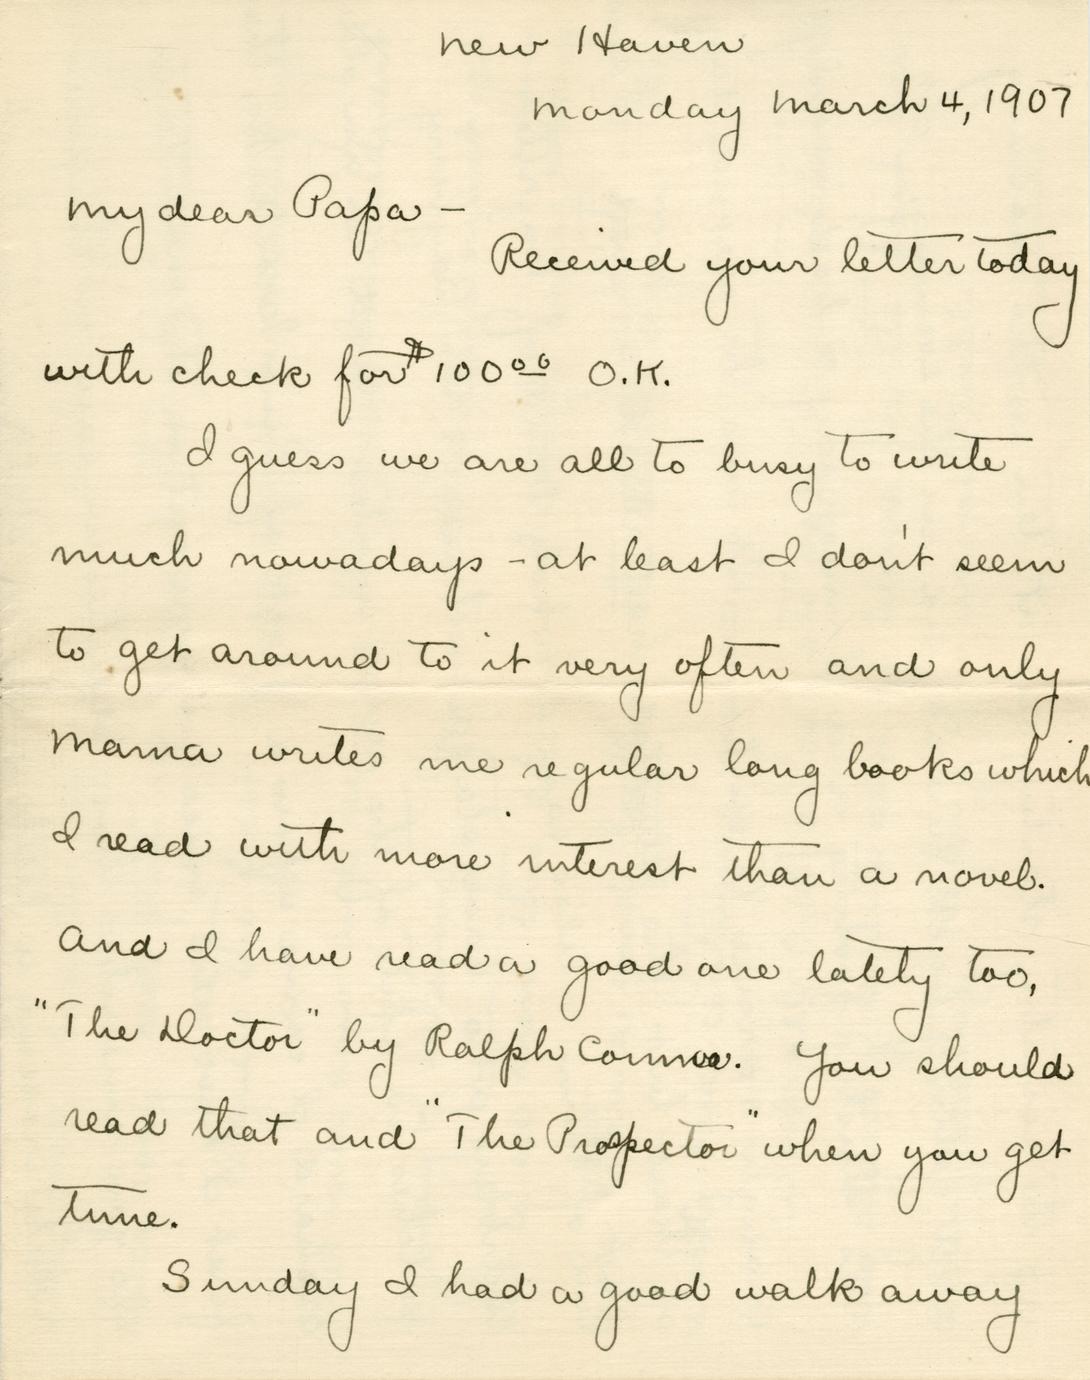 New Haven
Monday March 4, 1907
My dear Papa –
Received your letter today
with check for $100.00 O.K.
I guess we are all to busy to write
much nowadays – at least I don't seem
to get around to it very often and only
Mama writes me regular long books which
I read with more interest than a novel.
And I have read a good one lately too,
"The Doctor" by Ralph Connor. You should
read that and "The Prospector" when you get
time.
Sunday I had a good walk away